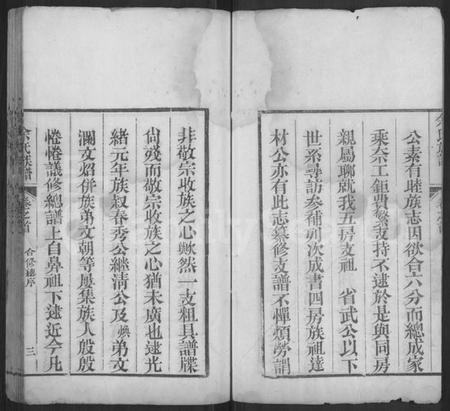 公素有睦族志因欲合六分而總成家
乘宗工鉅費繁支持不逮於是與同房
親屬聊就我五房支祖 省武公以下
世系尋訪参補列次成書四房族祖達
材公亦有此志纂修支譜不憚煩勞詎
非敬宗收族之心歟然一支粗具譜牒
尙殘而敬宗收族之心猶未廣也逮光
緒元年族叔春秀公繼清公及 煥弟文
瀾文炤併族弟文朝等屢集族人殷殷
惓惓議修總譜上自鼻祖下逮近今凡
余氏族譜 卷之首 合修總序 三